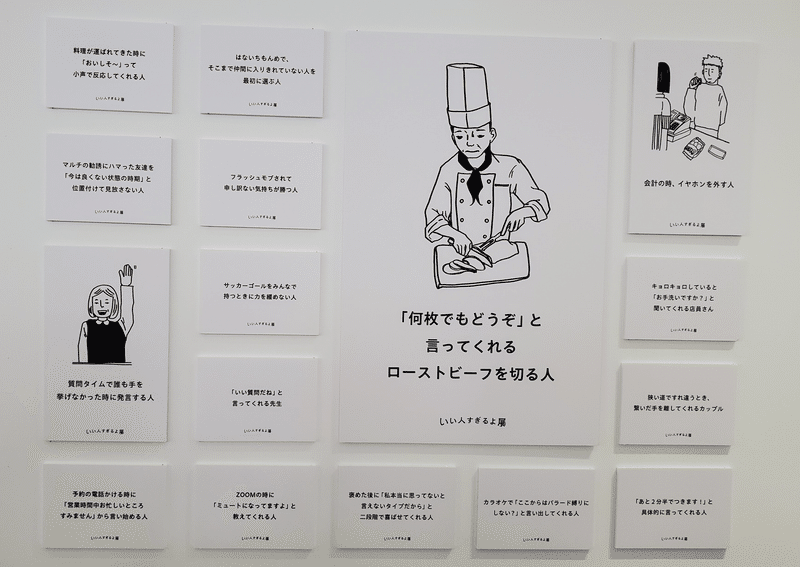 料理が運ばれてきた時に
「おいしそ〜」って
小声で反応してくれる人
いい人すぎるよ展
はないちもんめで、
そこまで仲間に入りきれていない人を
最初に選ぶ人
いい人すぎるよ展
マルチの勧誘にハマった友達を
「今は良くない状態の時期」と
位置付けて見放さない人
いい人すぎるよ展
フラッシュモブされて
申し訳ない気持ちが勝つ人
いい人すぎるよ展
質問タイムで誰も手を
挙げなかった時に発言する人
いい人すぎるよ展
サッカーゴールをみんなで
持つときに力を緩めない人
いい人すぎるよ展
「いい質問だね」と
言ってくれる先生
いい人すぎるよ展
「何枚でもどうぞ」と
言ってくれる
ローストビーフを切る人
いい人すぎるよ展
会計の時、イヤホンを外す人
いい人すぎるよ展
キョロキョロしていると
「お手洗いですか？」と
聞いてくれる店員さん
いい人すぎるよ展
狭い道ですれ違うとき、
繋いだ手を離してくれるカップル
いい人すぎるよ展
予約の電話かける時に
「営業時間中お忙しいところ
すみません」から言い始める人
いい人すぎるよ展
ZOOMの時に
「ミュートになってますよ」と
教えてくれる人
いい人すぎるよ展
褒めた後に「私本当に思ってないと
言えないタイプだから」と
二段階で喜ばせてくれる人
いい人すぎるよ展
カラオケで「ここからはバラード縛りに
しない？」と言い出してくれる人
いい人すぎるよ展
「あと２分半でつきます！」と
具体的に言ってくれる人
いい人すぎるよ展